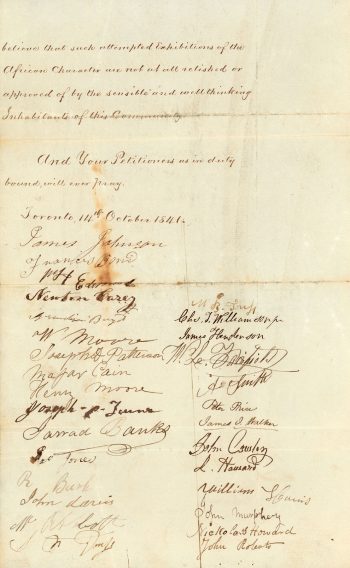 believe that such attempted Exhibitions of the
African Character are not at all relished or
approved of by the sensible and well thinking
Inhabitants of this Community
And Your Petitioners as in duty
bound, will ever pray.
Toronto, 14th October 1841.
James Johnson
Francis
Edmonds
Newton Carey
W Moore
Joseph Patterson
Major Cain
Henry Moore
Joseph
Jarrad Banks
Geo
R
John Davis
W
Chas. T. William
James Henderson
Smith
Peter Price
James J. Walker
John Cowley
L. Howard
William Harris
John Murphery
Nickolas Howard
John Roberts